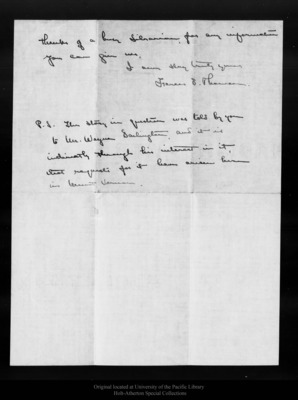 thanks of a busy librarian, for any information
you can give us.
I am very truly yours
Frances E. Thomson.
P.S. The story in question was told by you
to Mr. Wayne Darlington, and it is
indirectly through his interest in it,
that requests for it have arisen here
in Mount Vernon.
Original located at University of the Pacific Library
Holt-Atherton Special Collections